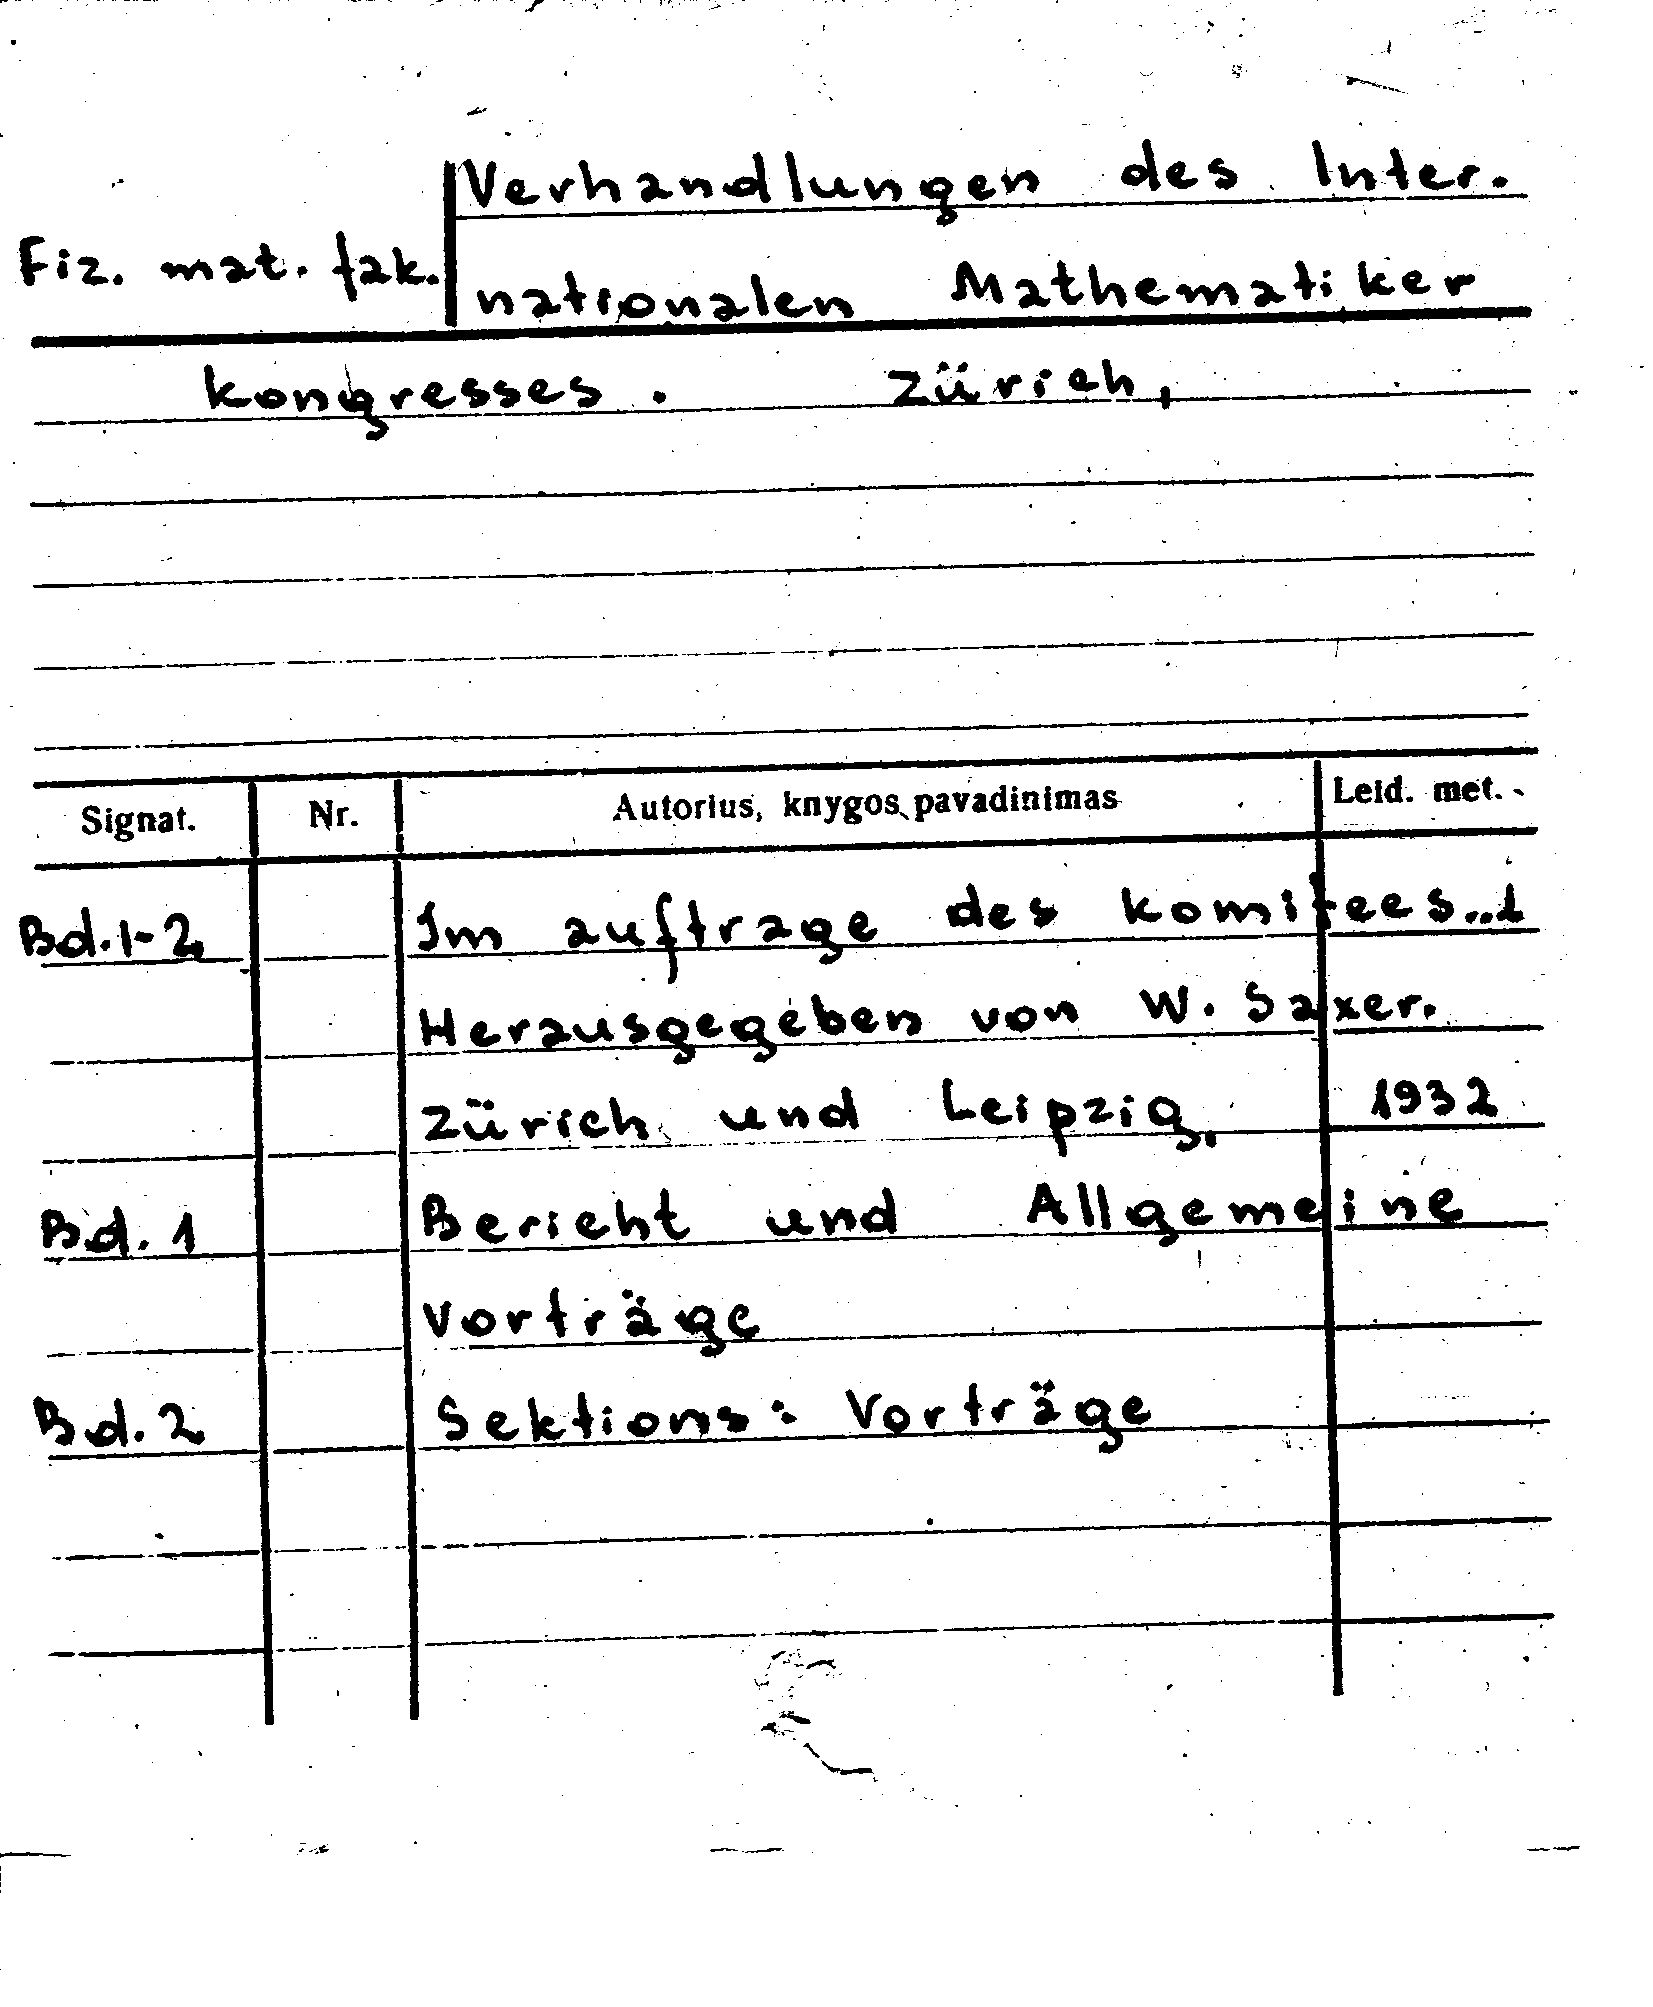 Verhandlungen des Inter.
Fiz. mat. fak.
nationalen Mathematiker
kongresses. Zürich,
Signat. Nr. Autorius, knygos pavadinimas Leid. met.
Bd. 1-2 Im auftrage des komitees...
Herausgegeben von W. Saxer.
Zürich und Leipzig, 1932
Bd. 1 Bericht und Allgemeine
Vorträge
Bd. 2 Sektions: Vorträge